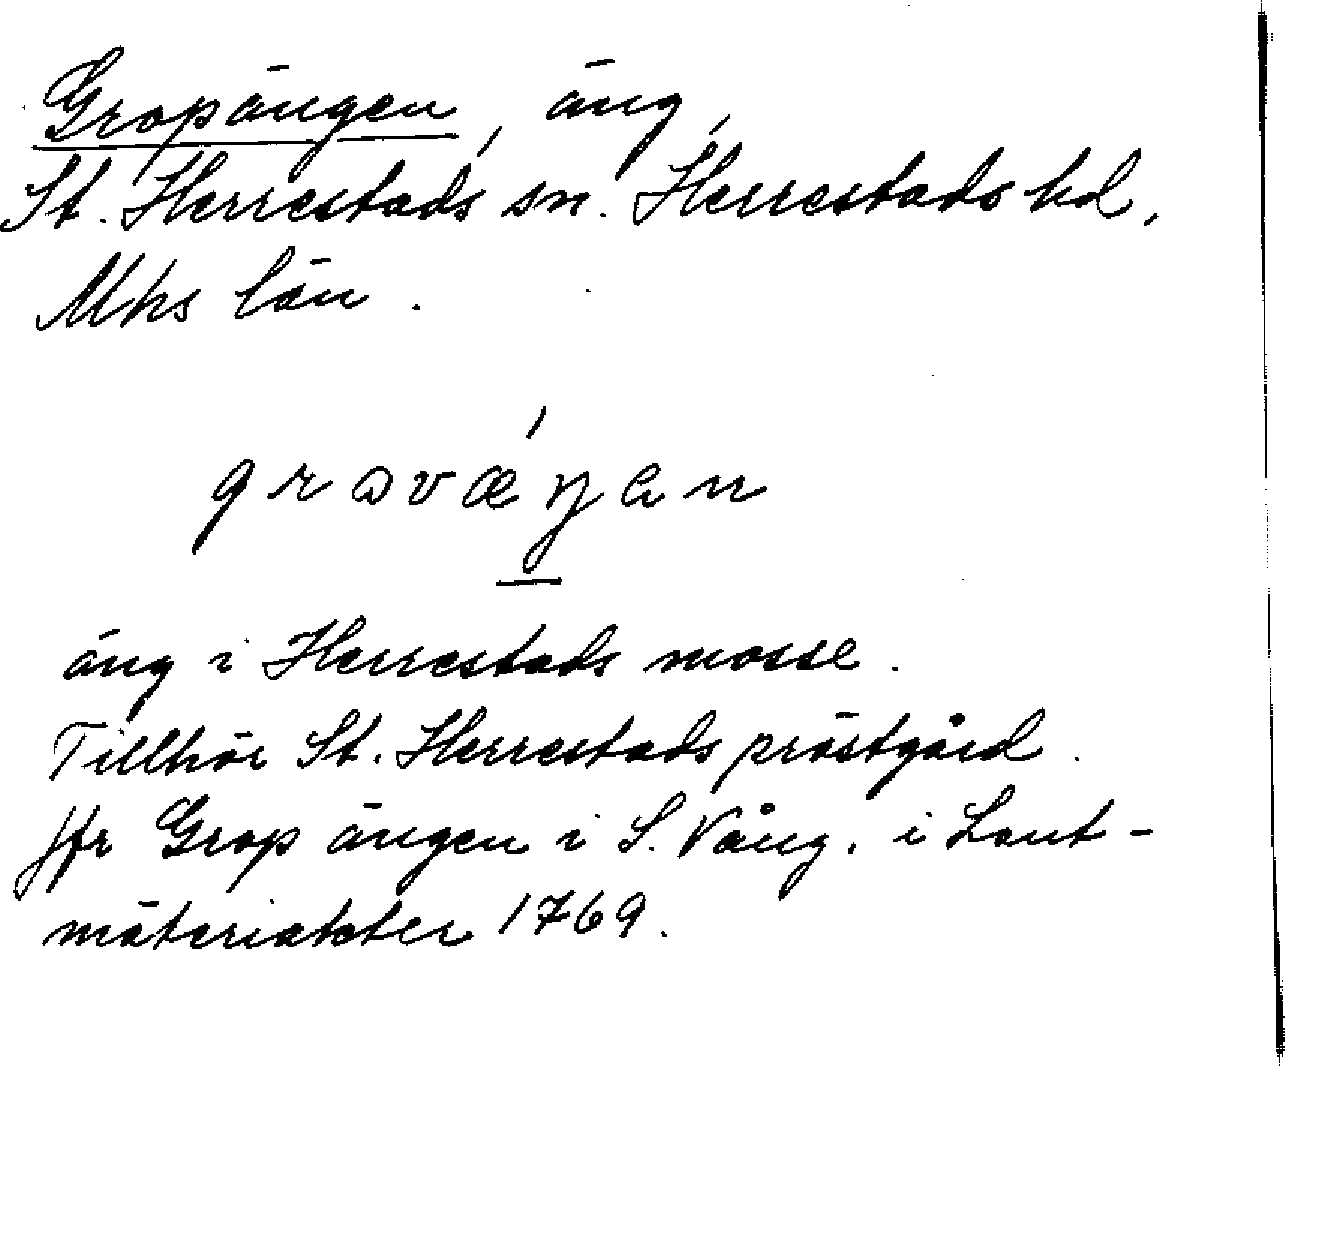 Gropängen, äng,
St. Herrestads sn. Herrestads hd,
Mhs län.
grɔvæ´ŋan
äng i Herrestads mosse.
Tillhör St. Herrestads prästgård.
Jfr Grop ängen i S. Vång. i Lant-
mäteriakter 1769.